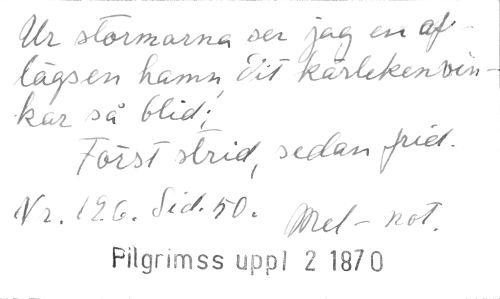 Ur stormarna ser jag en af-
lägsen hamn, Dit kärleken vin-
kar så blid;
Först strid, sedan frid.
Nr. 126. Sid. 50. Mel-not.
Pilgrimss uppl 2 1870